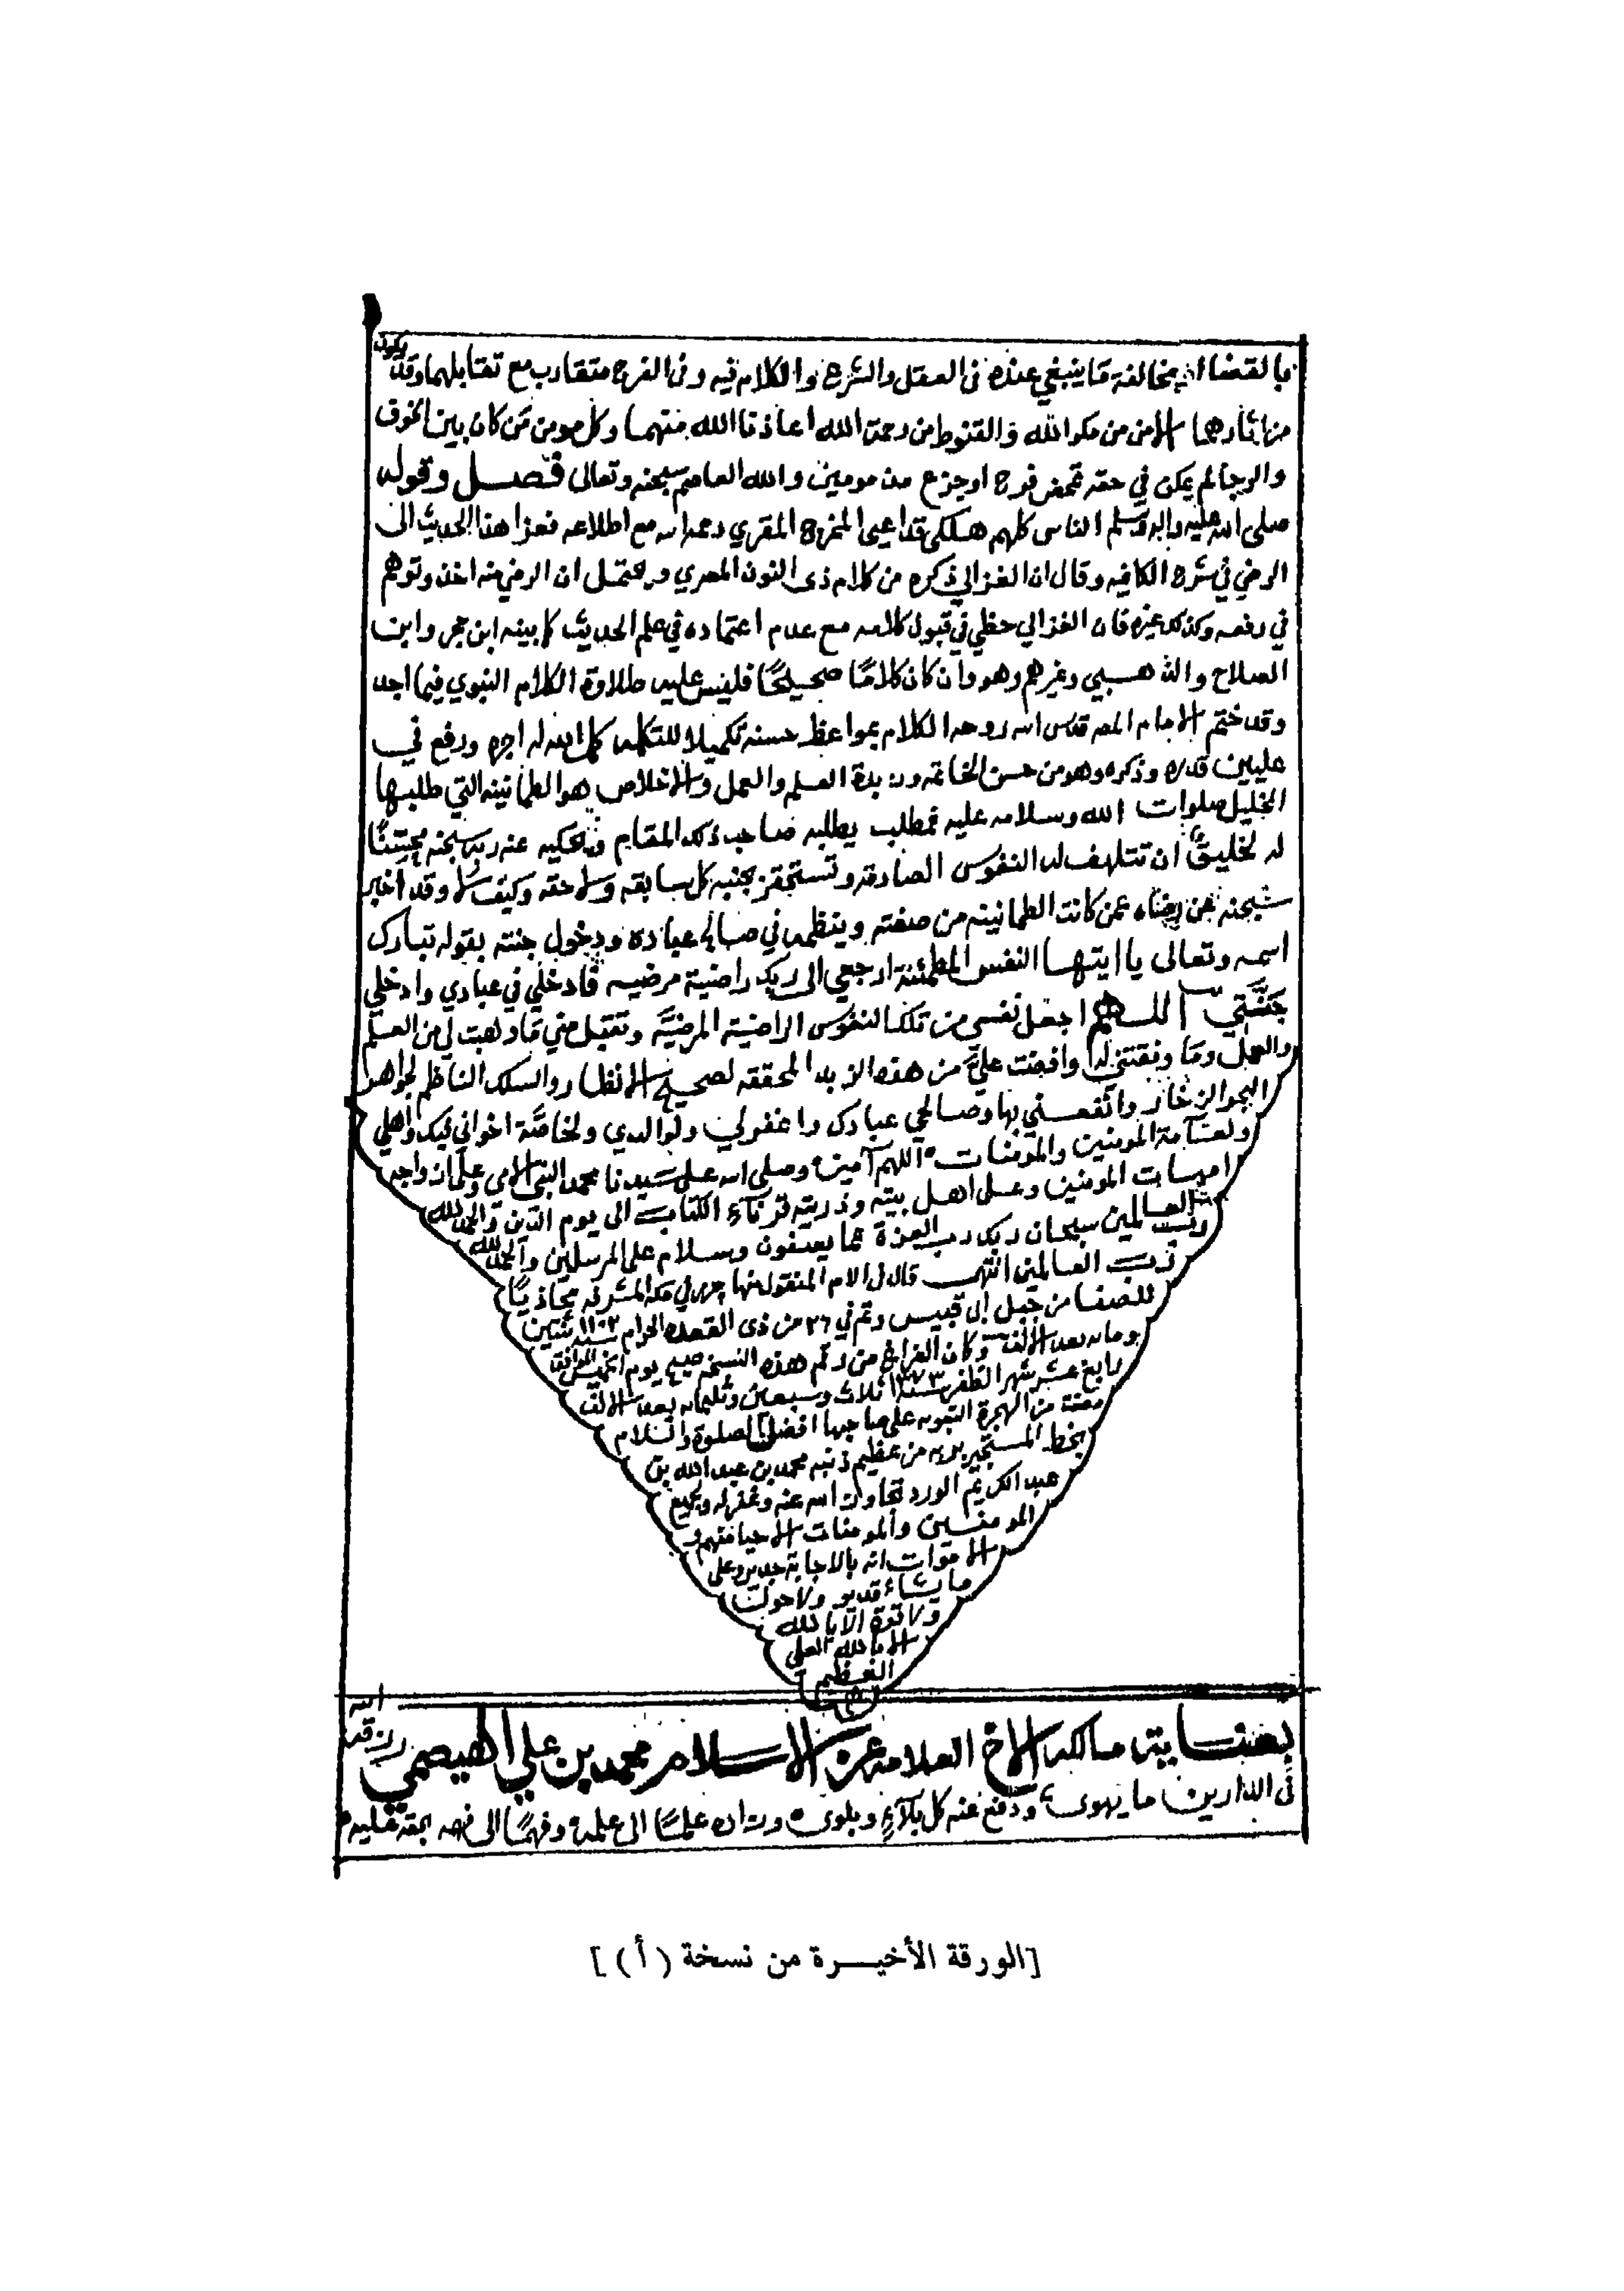 بالقضا مخالفة ما ينبغي عنده في العقل والشرع والكلام فيه وفي الفرح متقارب مع تقابلهما وقد يكون
من اثارهما الامن من مكر الله والقنوط من رحمة الله اعاذنا الله منهما وكل مومن من كان بين الخوف
والرجا لم يكن في حقه تمحض فرح او جزع من مومين والله العاصم سبحنه وتعالى فصل وقوله
صلى الله عليه واله وسلم الناس كلهم هلكى قد اعيى المخرج المقري رحمه الله مع اطلاعه فعزا هذا الحديث الى
الرضي في شرح الكافيه وقال ان الغزالي ذكره من كلام ذى النون المصري ويحتمل ان الرضي منه اخذ وتوهم
في رفعه وكذلك غيره فان الغزالي حظي في قبول كلامه مع عدم اعتماده في علم الحديث كما بينه ابن حجر وابن
الصلاح والذهبي وغيرهم وهو وان كان كلامًا صحيحًا فليس عليه طلاوة الكلام النبوي فيما اجد
وقد ختم الامام المص قدس الله روحه الكلام بمواعظ حسنه تكميلا للتكلمه كمل الله له اجره ورفع في
عليين قدره وذكره وهو من حسن الخاتمه وزبدة العلم والعمل والاخلاص هو الطمانينه التي طلبها
الخليل صلوات الله وسلامه عليه فمطلب يطلبه صاحب ذلك المقام ويحكيه عنه ربه سبحنه
له لخليق ان تتلهف له النفوس الصادقه وتستحقر بجنبه كل سابقه ولاحقه وكيف لا وقد اخبر
سبحنه عن رضاه عمن كانت الطمانينه من صفته وينظمه في صالح عباده ودخول جنته بقوله تبارك
اسمه وتعالى يا ايتها النفس المطمئنة ارجعي الى ربك راضية مرضيه فادخلي في عبادي وادخلي
جنتي اللهم اجعل نفسي من تلك النفوس الراضية المرضيه وتقبل مني ما وهبت لي من العلم
والعمل وما وفقتني له وافضت علي من هذه الزبد المحققه لصحيح الانظار والسلك الناظم لجواهر
البحر الزخار وانفعني بها وصالحي عبادك واغفر لي ولوالدي ولخاصة اخواني فيك واهلي
ولعامة المومنين والمومنات اللهم آمين وصلى الله على سيدنا محمد النبي الامي وعلى ازواجه
امهات المومنين وعلى اهل بيته وذريته قرناء الكتاب الى يوم الدين والحمد لله
رب العالمين سبحان ربك رب العزة عما يصفون وسلام على المرسلين والحمد لله
رب العالمين انتهى قال في الام المنقول منها حرر في مكه المشرفه محاذيًا
للصفا من جبل ابي قبيس وتم في ٢٦ من ذى القعده الحرام سنه ١١٠٢ ثنتين
ومايه بعد الالف وكان الفراغ من رقم هذه النسخه صبح يوم الخميس الموافق
رابع عشر شهر الظفر سنة ١٣٧٣ ثلاث وسبعين وثلثمايه بعد الالف
من الهجرة النبويه على صاحبها افضل الصلوة والسلام
بخط المستجير بربه من عظيم ذنبه محمد بن عبد الله بن
عبد الكريم الورد تجاوز الله عنه وغفر له ولجميع
المومنين والمومنات الاحيا منهم و
الاموات انه بالاجابة جدير وعلى
ما يشاء قدير ولا حول
ولا قوة الا بالله
الا بالله العلي
العظيم
بعناية مالكه الاخ العلامه عز الاسلام محمد بن علي الهيصمي رزقه الله
في الدارين ما يهوى ودفع عنه كل بلآء وبلوى وزاده علمًا الى علمه وفهمًا الى فهمه
[الورقة الأخيرة من نسخة (أ)]